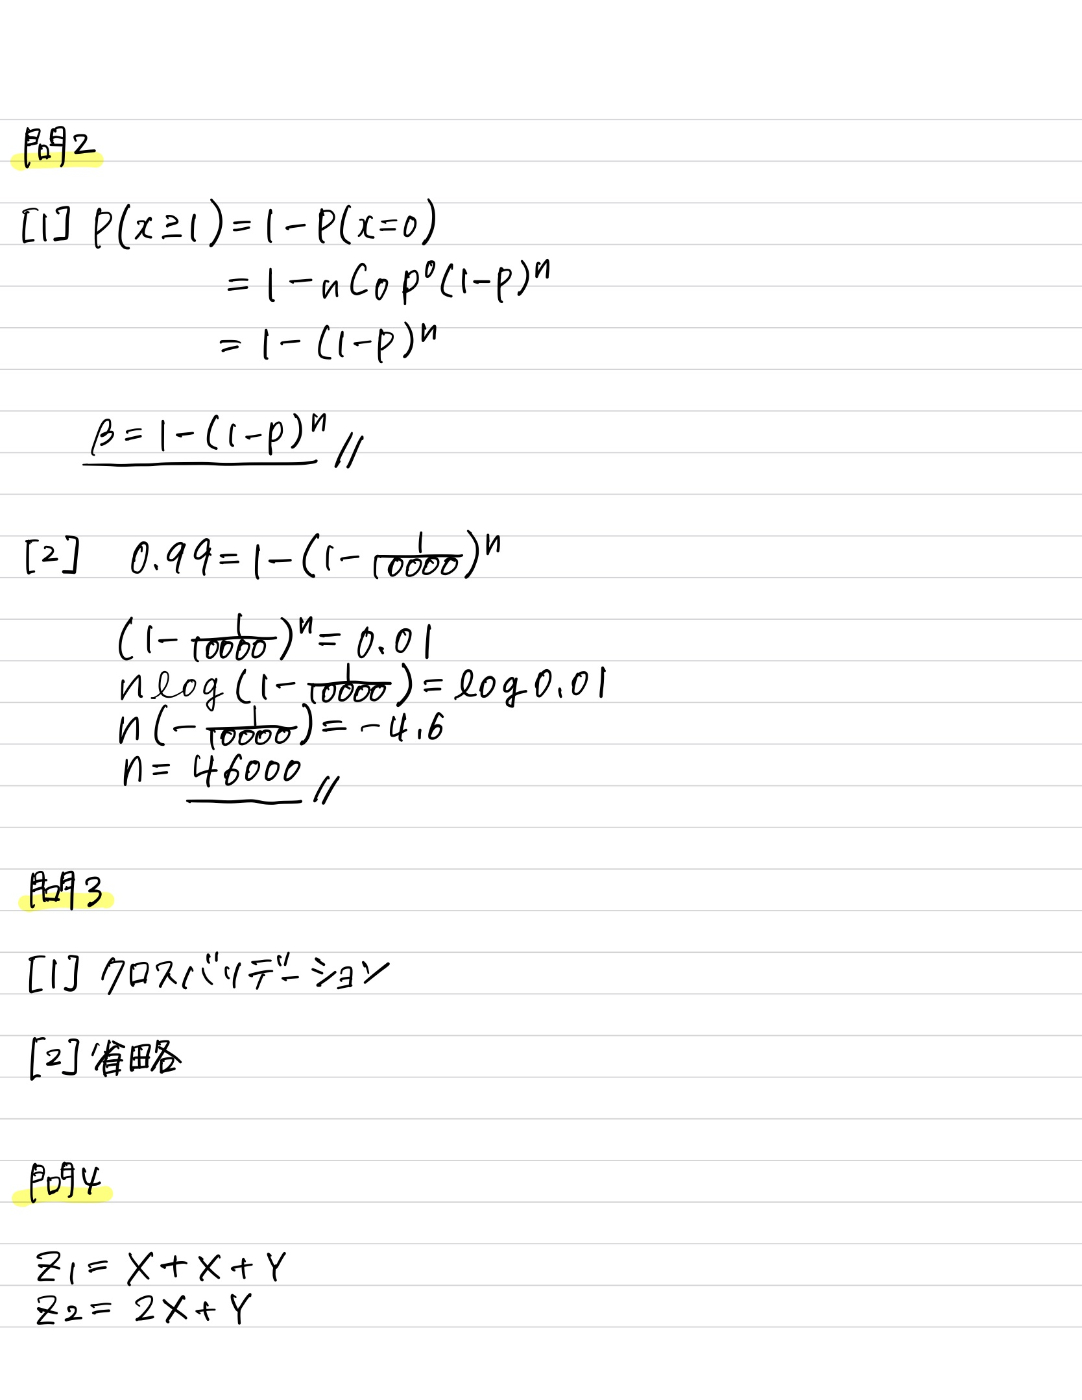 問2
[1] P(x≧1)=1-P(x=0)
=1-nC0 p⁰(1-p)ⁿ
=1-(1-p)ⁿ
β=1-(1-p)ⁿ //
[2] 0.99=1-(1-1/10000)ⁿ
(1-1/10000)ⁿ=0.01
n log(1-1/10000)=log0.01
n(-1/10000)=-4.6
n=46000 //
問3
[1] クロスバリデーション
[2] 省略
問4
Z1=X+X+Y
Z2=2X+Y